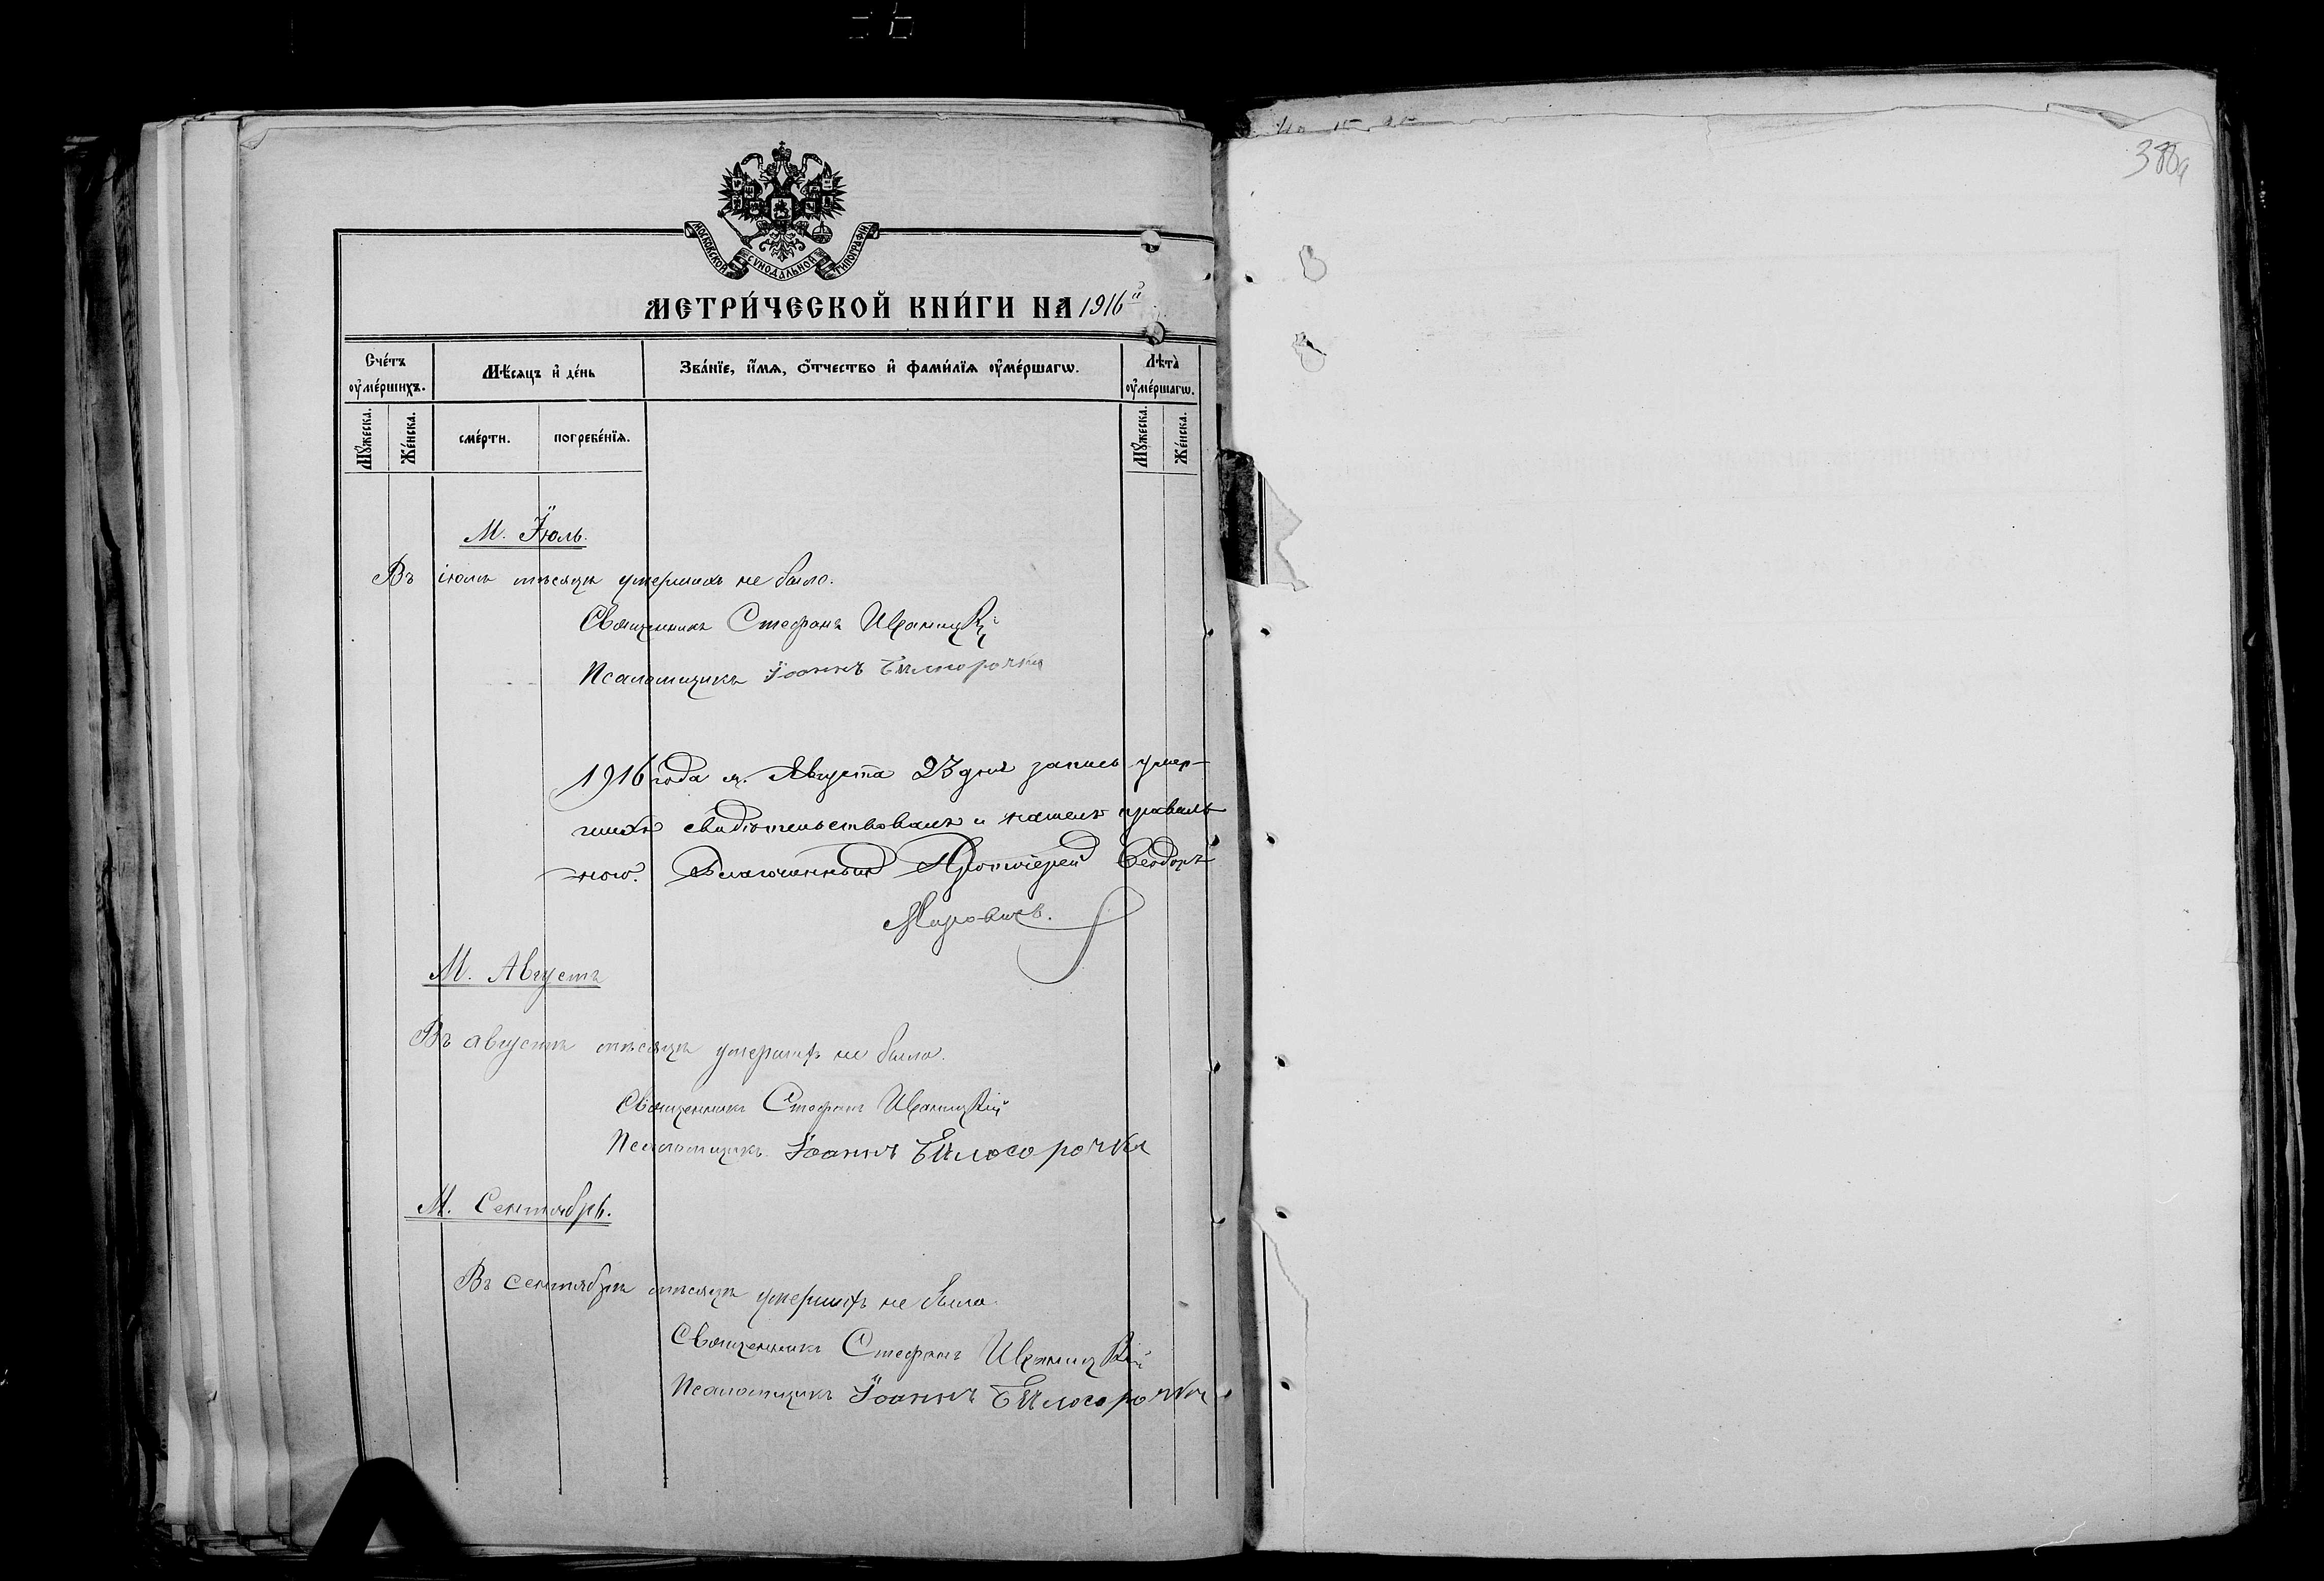 388а
МОСКОВСКОЙ СУНОДАЛЬНОЙ ТИПОГРАФІИ
МЕТРИ́ЧЕСКОЙ КНИ́ГИ НА 1916й
Сче́тъ оу҆ме́ршихъ.
Мѣ́сяцъ и҆ де́нь
Зва́нїе, и҆́мѧ, ѻ҆́тчество и҆ фамилїѧ оу҆ме́ршагѡ.
Лѣта̀ оу҆ме́ршагѡ.
Мꙋ́жеска.
Же́нска.
сме́рти.
погребе́нїѧ.
Мꙋ́жеска.
Же́нска.
М. Іюль.
Въ іюлѣ мѣсяцѣ умершихъ не было.
Священникъ Стефанъ Иваницкій
Псаломщикъ Іоаннъ Бѣлосорочка
1916 года м. Августа 23 дня запись умер-
шихъ свидѣтельствовалъ и нашелъ правиль-
ною. Благочинный Протоіерей Ѳеодоръ
М. Августъ
Въ августѣ мѣсяцѣ умершихъ не было.
Священникъ Стефанъ Иваницкій
Псаломщикъ Іоаннъ Бѣлосорочка
М. Сентябрь.
Въ сентябрѣ мѣсяцѣ умершихъ не было.
Священникъ Стефанъ Иваницкій
Псаломщикъ Іоаннъ Бѣлосорочка